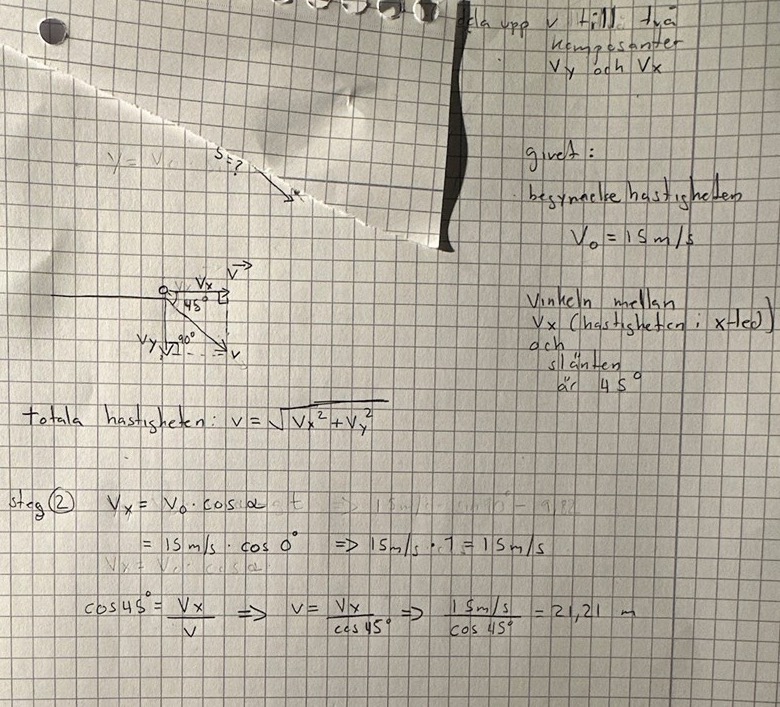 dela upp v till två
komposanter
Vy och Vx
givet:
begynnelse hastigheten
V₀ = 15 m/s
y = V
s=?
Vx
V
45°
Vy
90°
V
Vinkeln mellan
Vx (hastigheten i x-led)
och
slänten
är 45°
totala hastigheten: v = √(Vx² + Vy²)
steg ② Vx = V₀ · cos α
= 15 m/s · cos 0° => 15 m/s · 1 = 15 m/s
Vx = V₀ · cos α
cos 45° = Vx/V => v = Vx/cos 45° => 15 m/s/cos 45° = 21,21 m